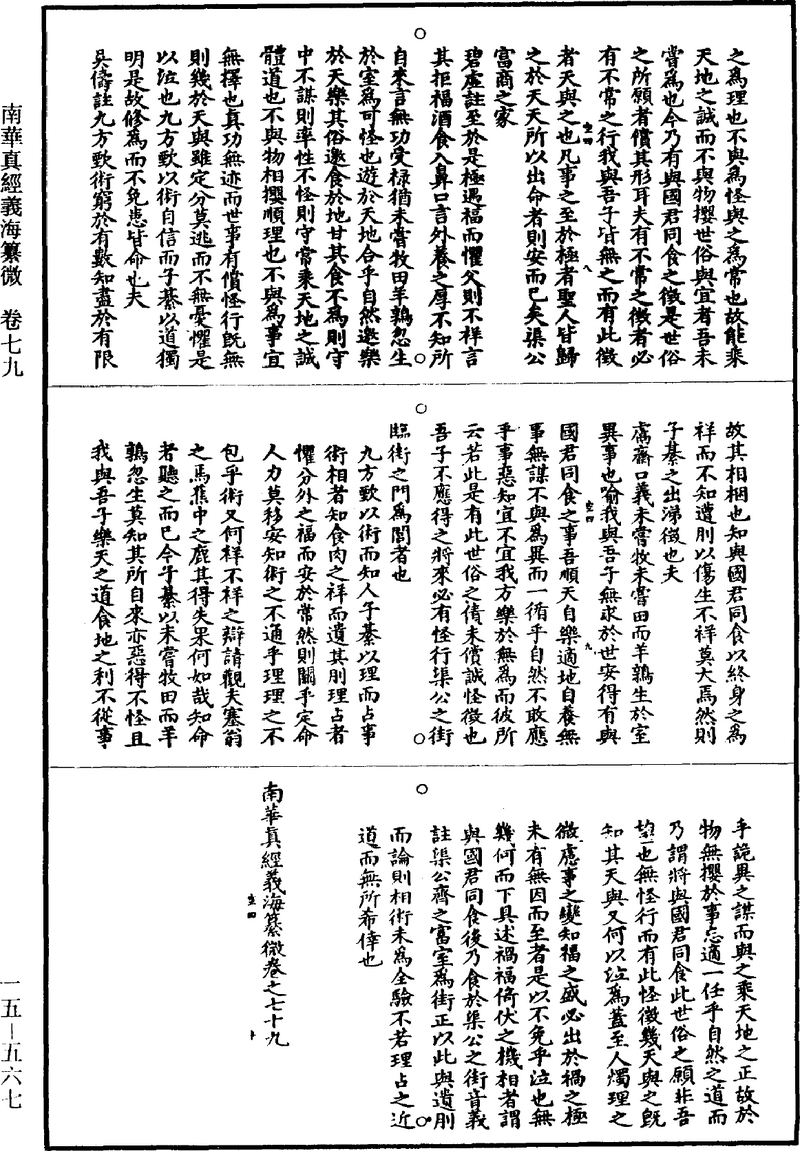 南華真經義海纂微　卷七九
一五—五六七
之爲理也不與爲怪與之爲常也故能乘
天地之誠而不與物攖世俗與宜者吾未
嘗爲也今乃有與國君同食之徵是世俗
之所願者償其形耳夫有不常之徵者必
有不常之行我與吾子皆無之而有此徵
者天與之也凡事之至於極者聖人皆歸
之於天天所以出命者則安而已矣渠公
富商之家
碧虛註至於是極遇福而懼父則不祥言
其拒福酒食入鼻口言外養之厚不知所
自來言無功受祿猶未嘗牧田羊鶉忽生
於室爲可怪也遊於天地合乎自然邀樂
於天樂其俗邀食於地甘其食不爲則守
中不謀則率性不怪則守當乘天地之誠
體道也不與物相攖順理也不與爲事宜
無擇也真功無迹而世事有償怪行既無
則幾於天與雖定分莫逃而不無憂懼是
以泣也九方歅以術自信而子綦以道獨
明是故修爲而不免患皆命也夫
吳儔註九方歅術窮於有數知盡於有限
故其相梱也知與國君同食以終身之爲
祥而不知遭刖以傷生不祥莫大焉然則
子綦之出涕徵也夫
鬳齋口義未嘗牧未嘗田而羊鶉生於室
異事也喻我與吾子無求於世安得有與
國君同食之事吾順天自樂適地自養無
事無謀不與爲異而一循乎自然不敢應
乎事惡知宜不宜我方樂於無爲而彼所
云若此是有此世俗之債未償誠怪徵也
吾子不應得之將來必有怪行渠公之街
臨街之門爲閽者也
九方歅以術而知人子綦以理而占事
術相者知食肉之祥而遺其刖理占者
懼分外之福而安於常然則關乎定命
人力莫移安知術之不通乎理理之不
包乎術又何祥不祥之辯請觀夫塞翁
之馬蕉中之鹿其得失果何如哉知命
者聽之而已今子綦以未嘗牧田而羊
鶉忽生莫知其所自來亦惡得不怪且
我與吾子樂天之道食地之利不從事
乎詭異之謀而與之乘天地之正故於
物無攖於事忘適一任乎自然之道而
乃謂將與國君同食此世俗之願非吾
望也無怪行而有此怪徵幾天與之既
知其天與又何以泣爲蓋至人燭理之
微應事之變知福之盛必出於禍之極
未有無因而至者是以不免乎泣也無
幾何而下具述禍福倚伏之機相者謂
與國君同食後乃食於渠公之街音義
註渠公齊之富室爲街正以此與遺刖
而論則相術未爲全驗不若理占之近
道而無所希倖也
南華真經義海纂微卷之七十九